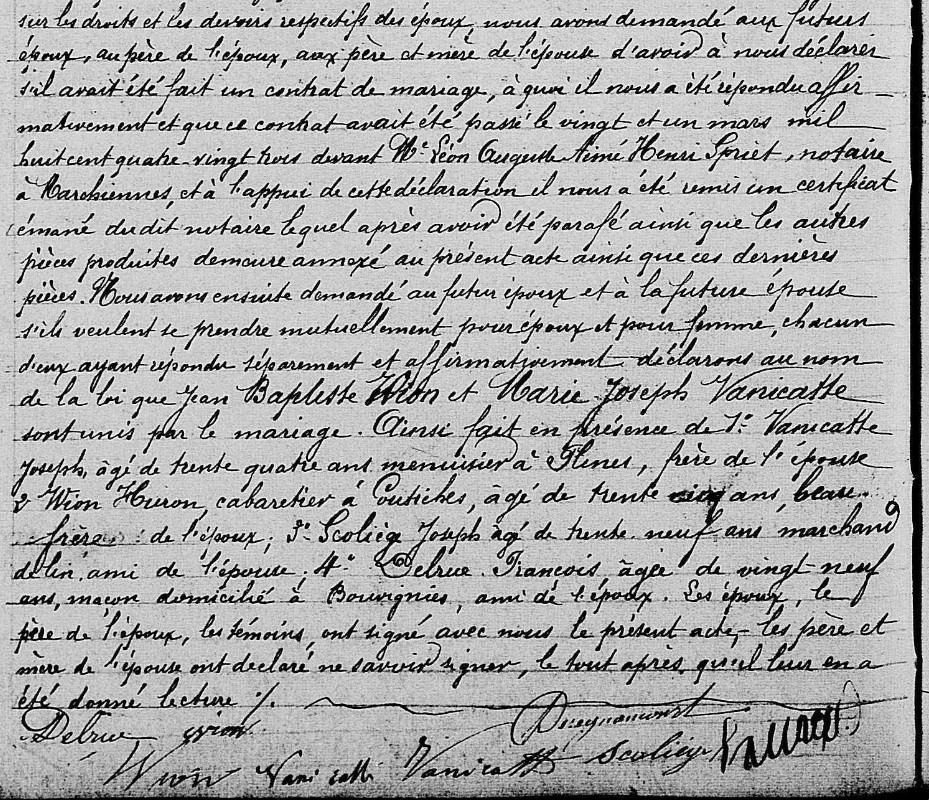 sur les droits et les devoirs respectifs des époux, nous avons demandé aux futurs
époux, au père de l'époux, aux père et mère de l'épouse d'avoir à nous déclarer
s'il avait été fait un contrat de mariage, à quoi il nous a été répondu affir
mativement et que ce contrat avait été passé le vingt et un mars mil
huit cent quatre-vingt trois devant Me Léon Auguste Aimé Henri Spriet, notaire
à Marchiennes, et à l'appui de cette déclaration il nous a été remis un certificat
émané dudit notaire lequel après avoir été parafé ainsi que les autres
pièces produites demeure annexé au présent acte ainsi que ces dernières
pièces. Nous avons ensuite demandé au futur époux et à la future épouse
s'ils veulent se prendre mutuellement pour époux et pour femme, chacun
d'eux ayant répondu séparement et affirmativement déclarons au nom
de la loi que Jean Baptiste Wion et Marie Joseph Vanicatte
sont unis par le mariage. Ainsi fait en présence de 1° Vanicatte
Joseph, âgé de trente quatre ans menuisier à Flines, frère de l'épouse
2 Wion Huron, cabaretier à Coutiches, âgé de trente cinq ans beau-
frère de l'époux; 3° Scoliége Joseph âgé de trente-neuf ans marchand
de lin, ami de l'épouse; 4° Delrue François, âgée de vingt-neuf
ans, maçon domicilié à Bouvignies, ami de l'époux. Les époux, le
père de l'époux, les témoins, ont signé avec nous le présent acte, les père et
mère de l'épouse ont déclaré ne savoir signer, le tout après, qu'il leur en a
été donné lecture ./.
Delrue Wion
Wion Vanicatte Vanicatte Scoliége